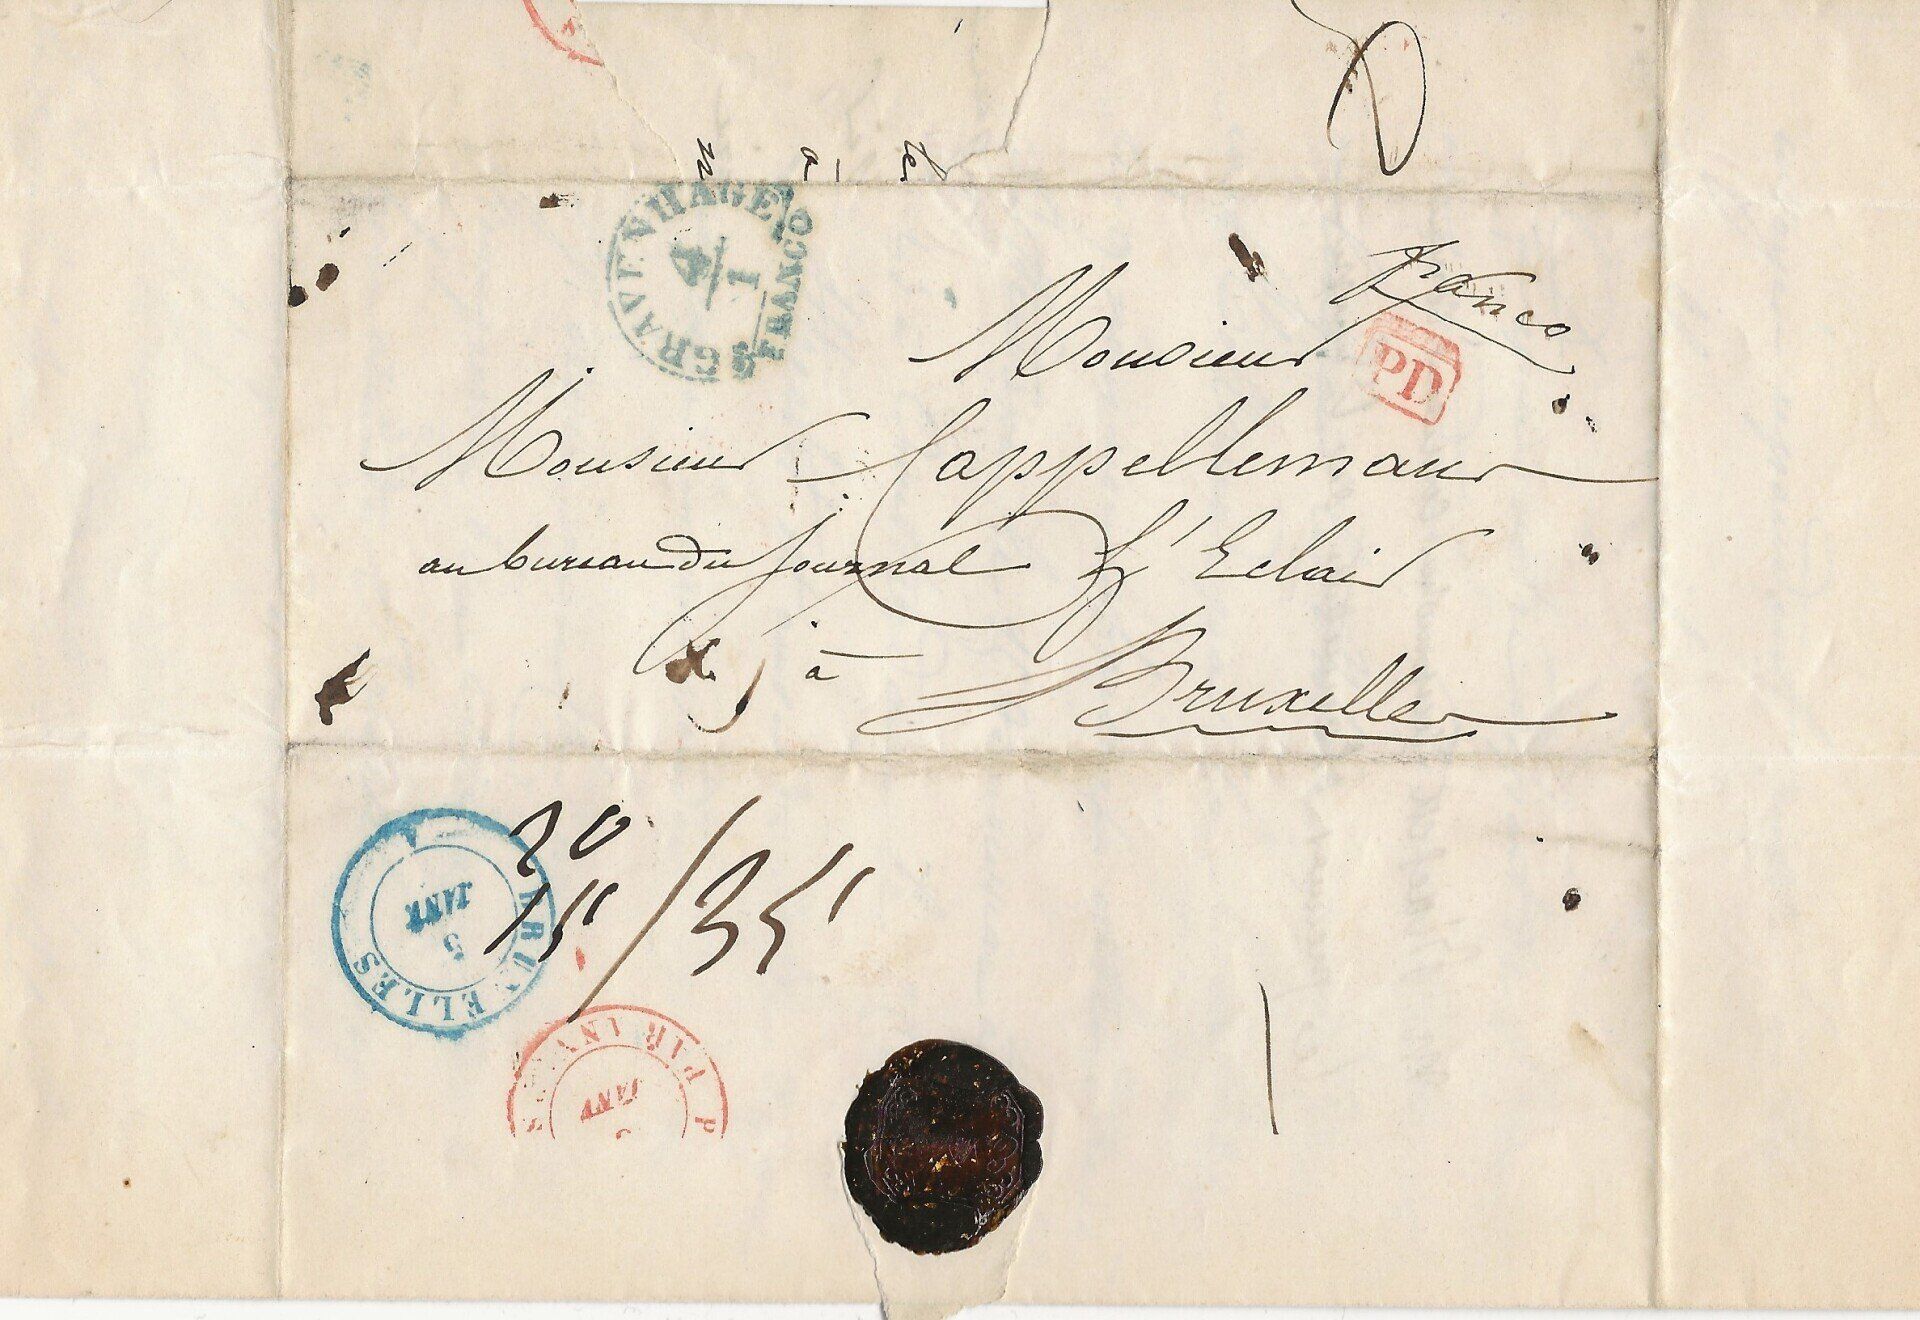 'S GRAVENHAGE
4/1
FRANCO
Franco
PD
Monsieur
Monsieur Cappellemans
au bureau du journal L'Eclair
à Bruxelles
20
15 / 35
BRUXELLES
5
JANV
PAR
JANV